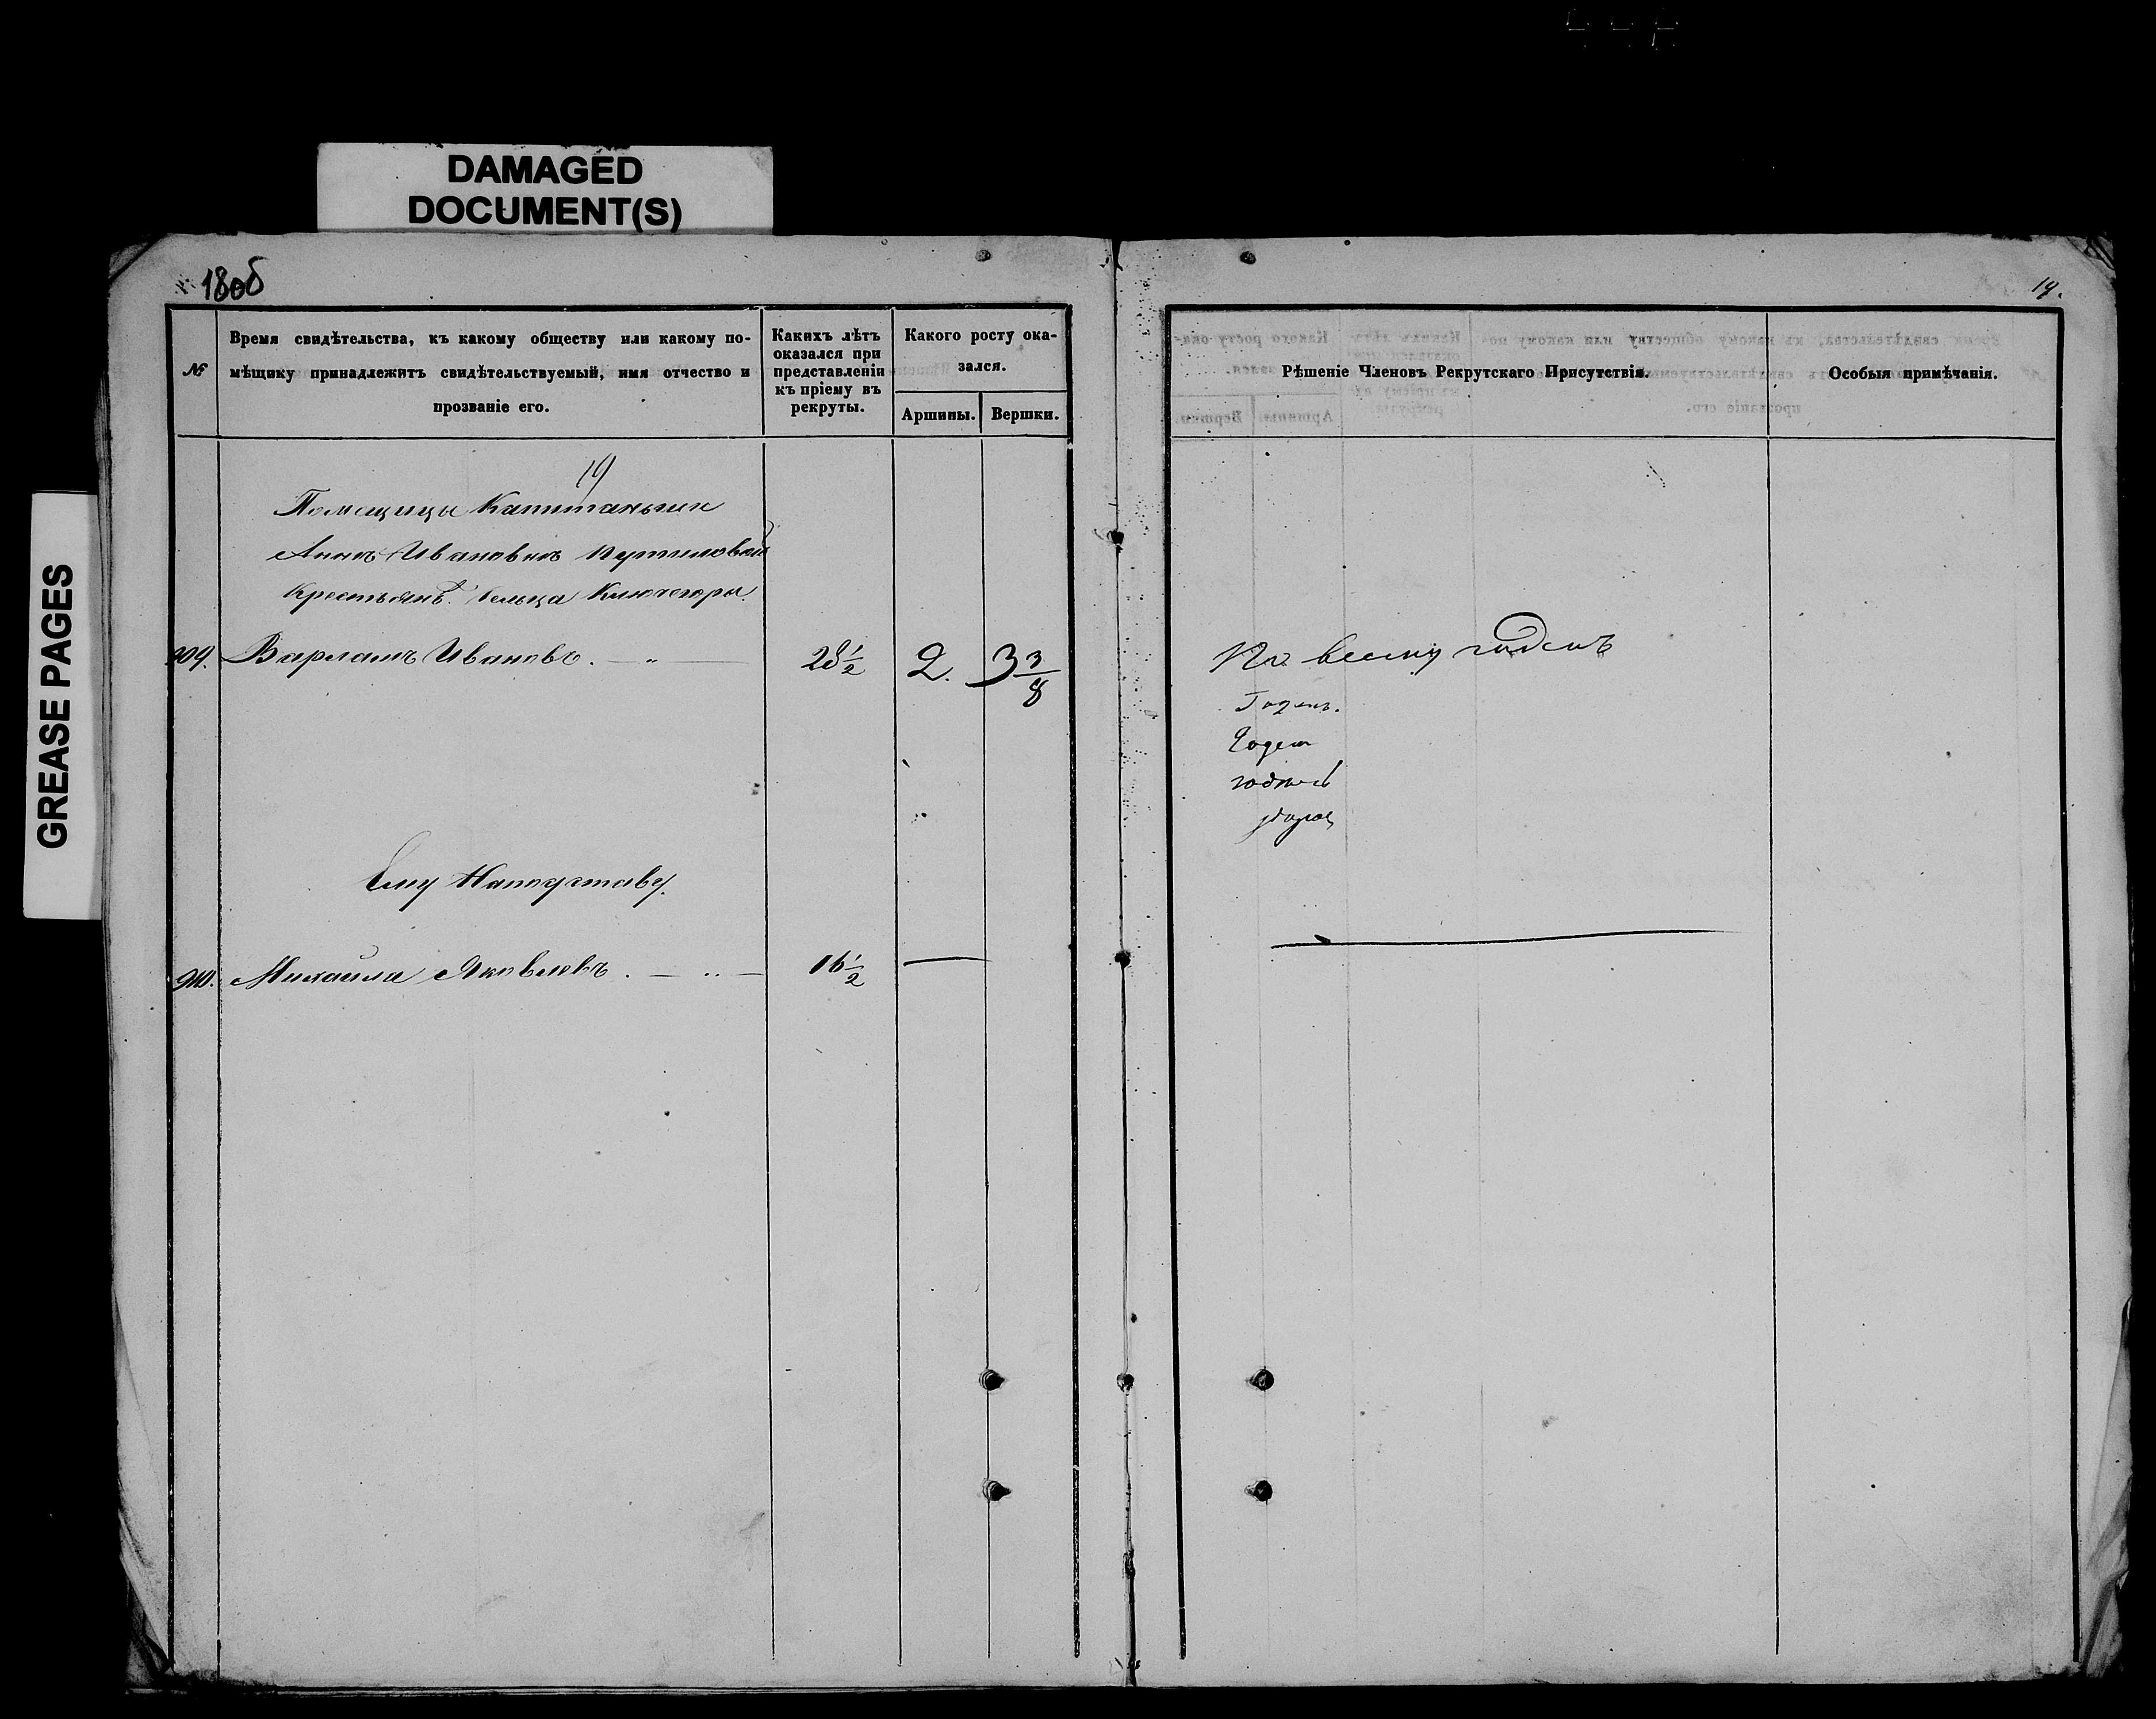 DAMAGED
DOCUMENT(S)
GREASE PAGES
19.
№
Время свидѣтельства, къ какому обществу или какому по-
мѣщику принадлежитъ свидѣтельствуемый, имя отчество и
прозваніе его.
Какихъ лѣтъ
оказался при
представленіи
къ пріему въ
рекруты.
Какого росту ока-
зался.
Аршины.
Вершки.
Рѣшеніе Членовъ Рекрутскаго Присутствія.
Особыя примѣчанія.
19
Помещицы Капитаньши
Анны Ивановны Путиловой
Крестьянъ. Сельца Ключегоры.
909. Варламъ Ивановъ. — „ — 28 1/2 2. 3 3/8
По всему годенъ
Годенъ.
Годен
годенъ
Ему Наподставу.
910. Михайла Яковлевъ. — „ — 16 1/2 —